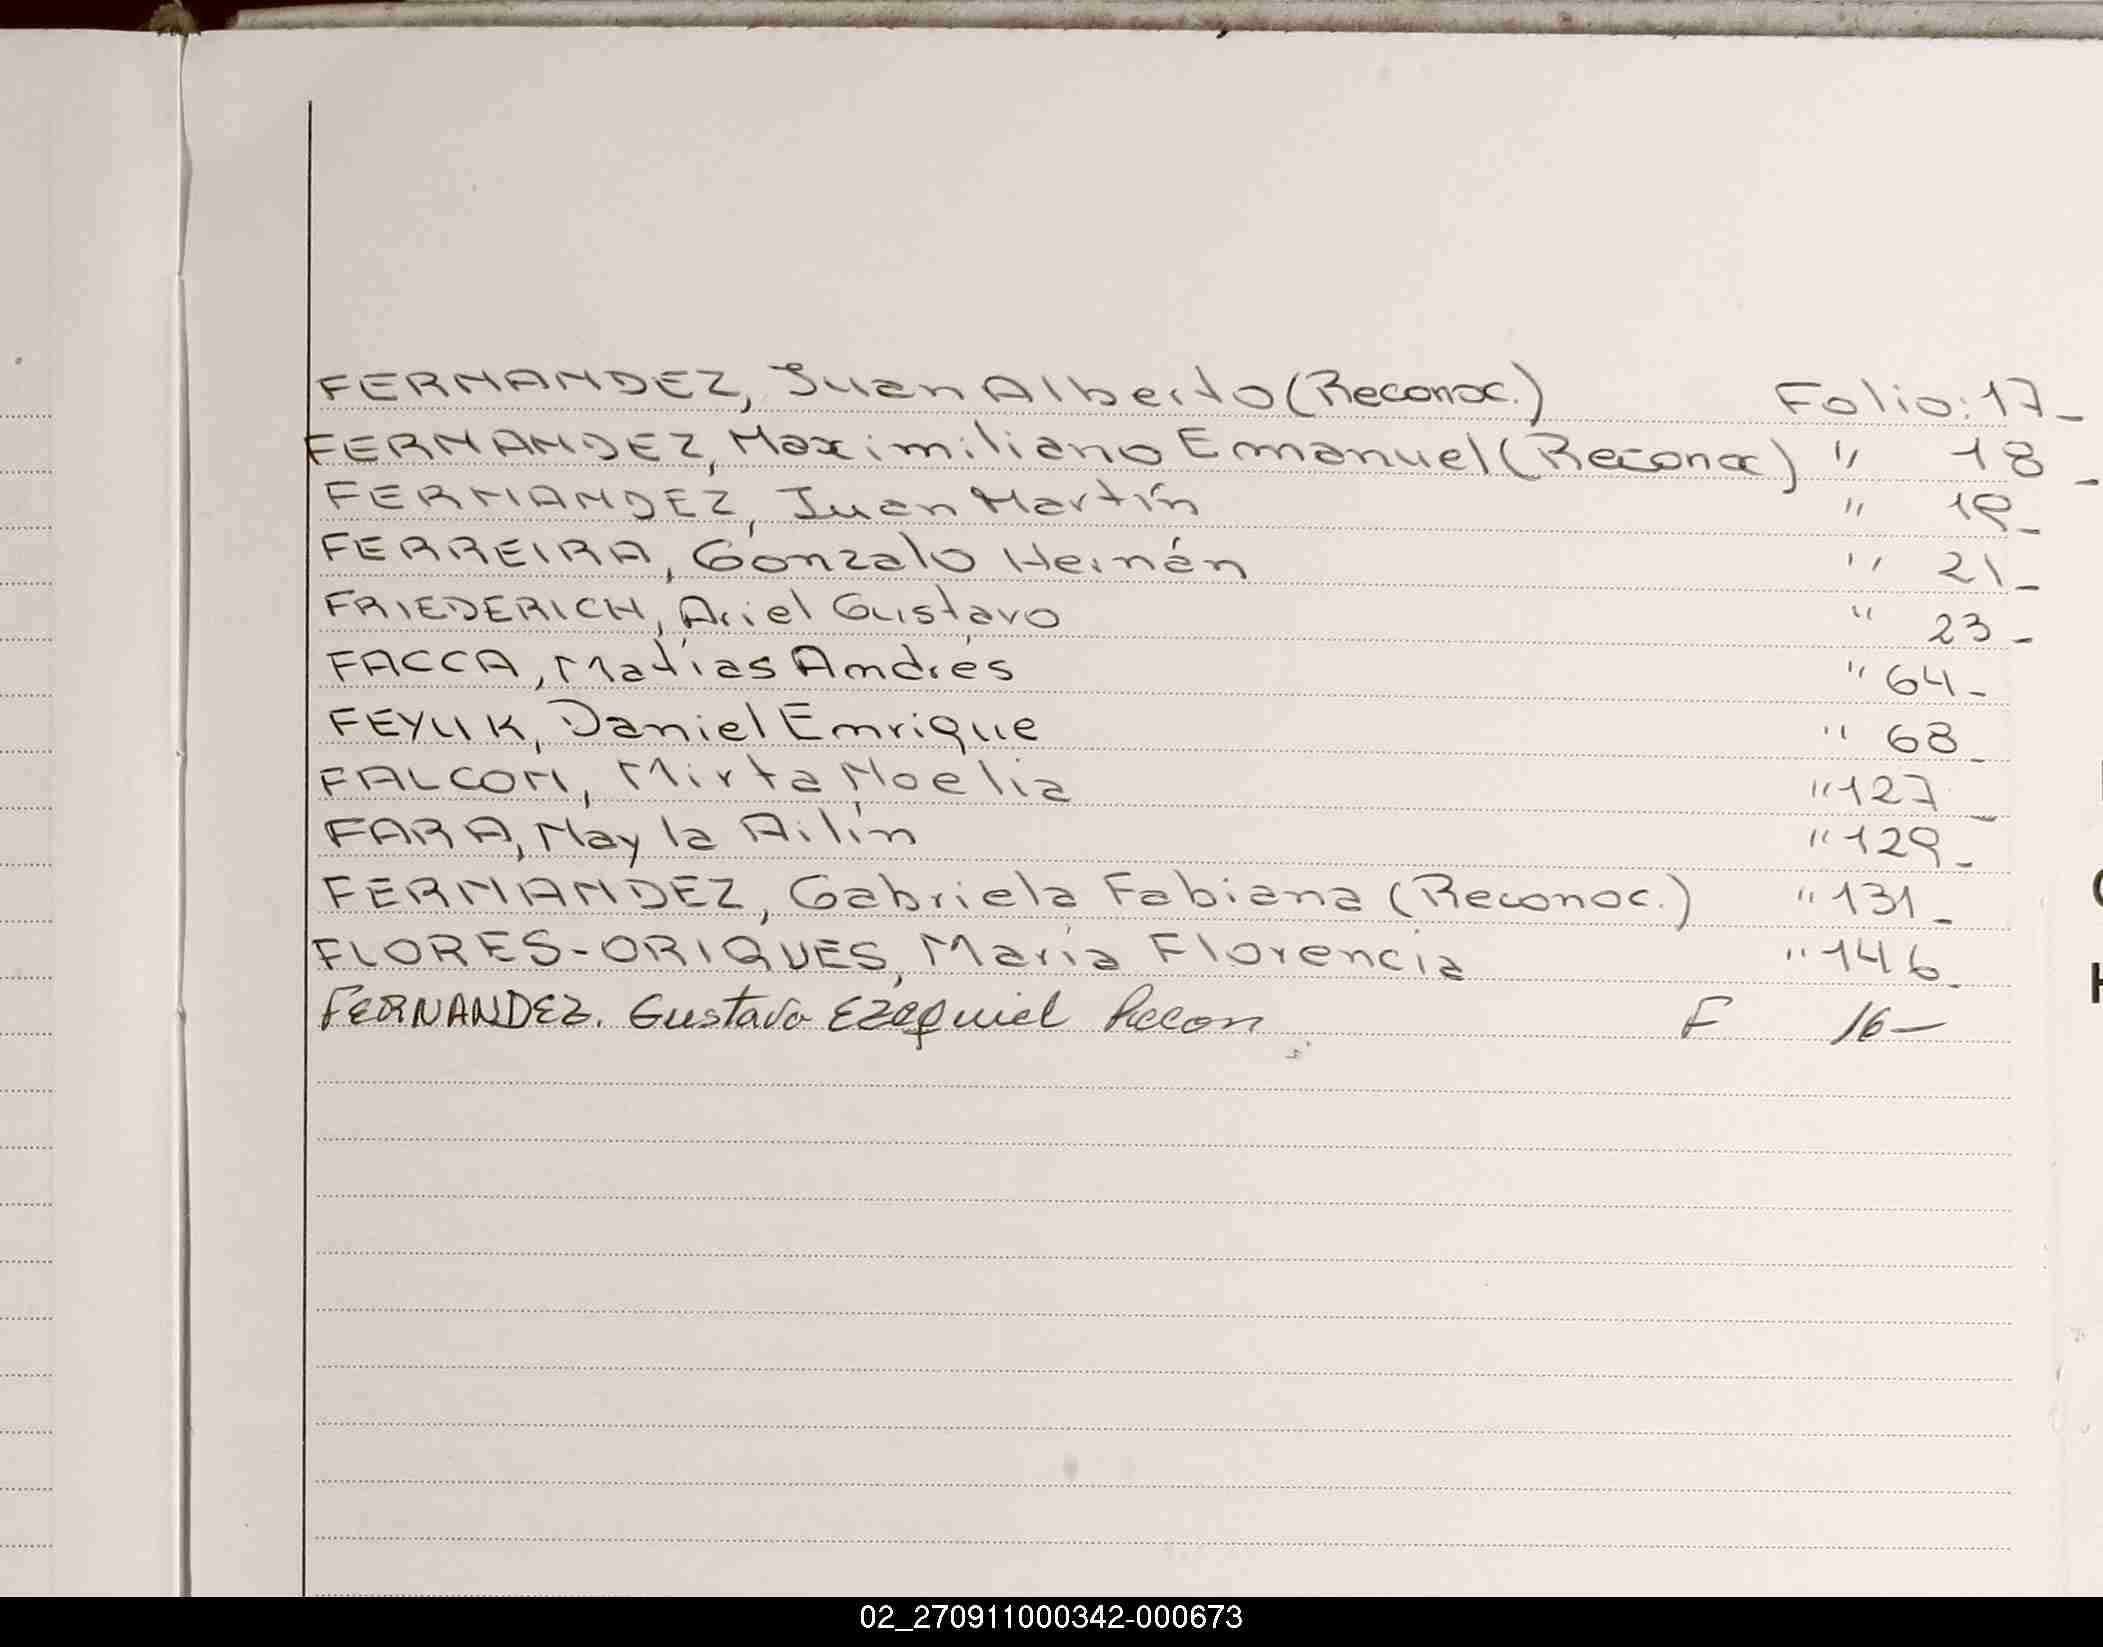 FERNANDEZ, Juan Alberto (Reconoc.) Folio: 17_
FERNANDEZ, Maximiliano Emanuel (Reconoc) " 18_
FERNANDEZ, Juan Martín " 19_
FERREIRA, Gonzalo Hernán " 21_
FRIEDERICH, Ariel Gustavo " 23_
FACCA, Matías Andrés " 64_
FEYUK, Daniel Enrique " 68_
FALCON, Mirta Noelia " 127_
FARA, Nayla Ailín " 129_
FERNANDEZ, Gabriela Fabiana (Reconoc.) " 131_
FLORES-ORIQUES, María Florencia " 146_
FERNANDEZ. Gustavo Ezequiel Recon F 16—
02_270911000342-000673